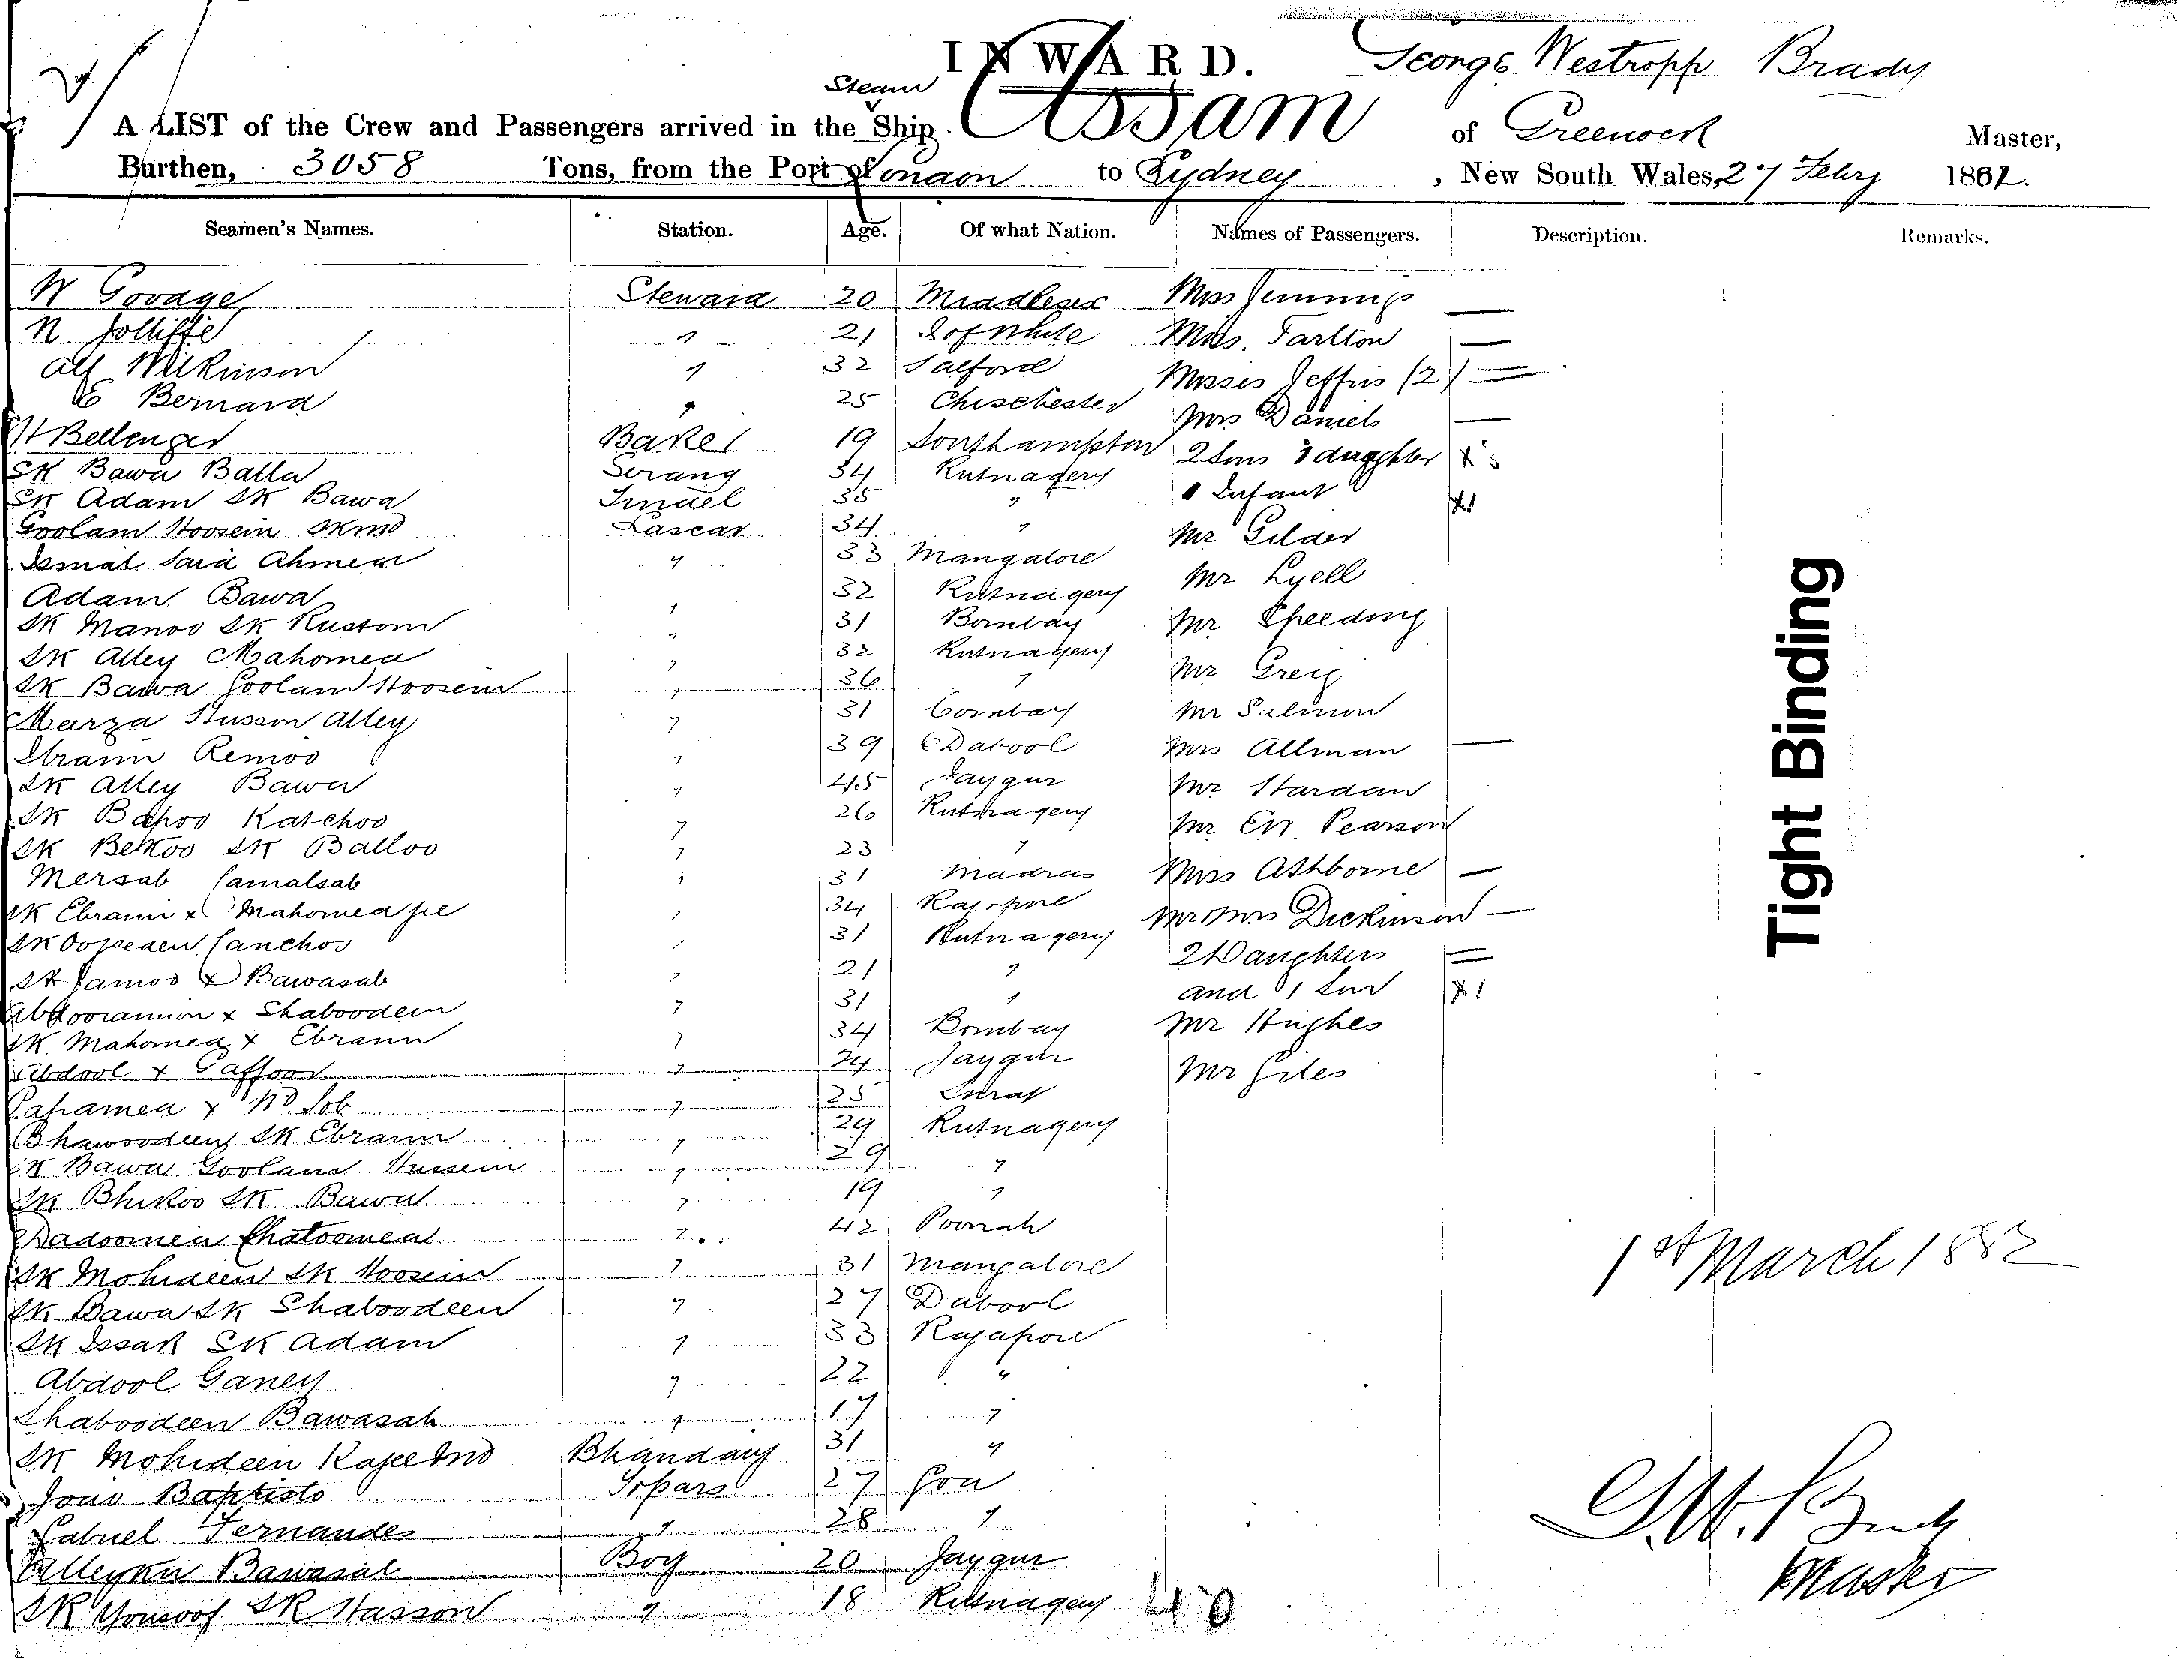 INWARD.
George Westropp Brady
A LIST of the Crew and Passengers arrived in the Steam Ship Assam of Greenock Master,
Burthen, 3058 Tons, from the Port of London to Sydney, New South Wales, 27 Febry 1882.
Seamen's Names. Station. Age. Of what Nation. Names of Passengers. Description. Remarks.
W Govage Steward 20 Middlesex Miss Jennings —
N Jolliffe " 21 I of White Miss. Tarlton —
Alf Wilkinson " 32 Salford Misses Jeffris (2) =
E Bernard " 25 Chischester Mrs Daniels —
H Bellenger Baker 19 Southampton 2 Sons 3 daughter
SK Bawa Balla Serang 34 Rutnagery
SK Adam SK Bawa Tindel 35 " Infant
Goolam Hoosein Lascar 34 " Mr Gilder
Ismal Said Ahmed " 33 Mangalore Mr Lyell
Adam Bawa " 32 Rutnagery
SK Manoo SK Rustom " 31 Bombay Mr Speeding
SK Alley Mahomed " 32 Rutnagery Mr Greig
SK Bawa Goolam Hoosein " 36 "
Marza Husson Alley " 31 Bombay Mr Salmon
Ebraim Remoo " 39 Dabool Mrs Allman —
SK Alley Bawa " 45 Jaygur Mr Hardan
SK Bapoo Katchoo " 26 Rutnagery Mr Pearson
SK Bekoo SK Balloo " 23 "
Mersab Camalsab " 31 Madras Miss Ashborne —
SK Ebraim x Mahomed " 34 Rajapore Mr Mrs Dickinson —
SK Canchoo " 31 Rutnagery 2 Daughters =
SK Jamoo x Bawasab " 21 " and 1 Son
x Shaboodeen " 31 " Mr Hughes
SK Mahomed x Ebraim " 34 Bombay
Abdool x Gaffoor " 24 Jaygur Mr Giles
" 25 Surat
Bhawoodeen SK Ebraim " 29 Rutnagery
SK Bawa Goolam Hussein " 29 "
SK Bhikoo SK Bawa " 19 "
Dadoomea Chatoomea " 42 Poonah
SK Mohideen SK Hoosein " 31 Mangalore
SK Bawa SK Shaboodeen " 27 Dabool
SK Issak SK Adam " 33 Rajapore
Abdool Ganey " 22 "
Shaboodeen Bawasab " 17 "
SK Mohideen Bhandary 31 "
Joao Baptisto Topars 27 Goa
Gabriel Fernandes " 28 "
Bawasab Boy 20 Jaygur
SK Yousoof SK Hasson " 18 Rutnagery 40
Tight Binding
1st March 1882
G.W. Brady
Master